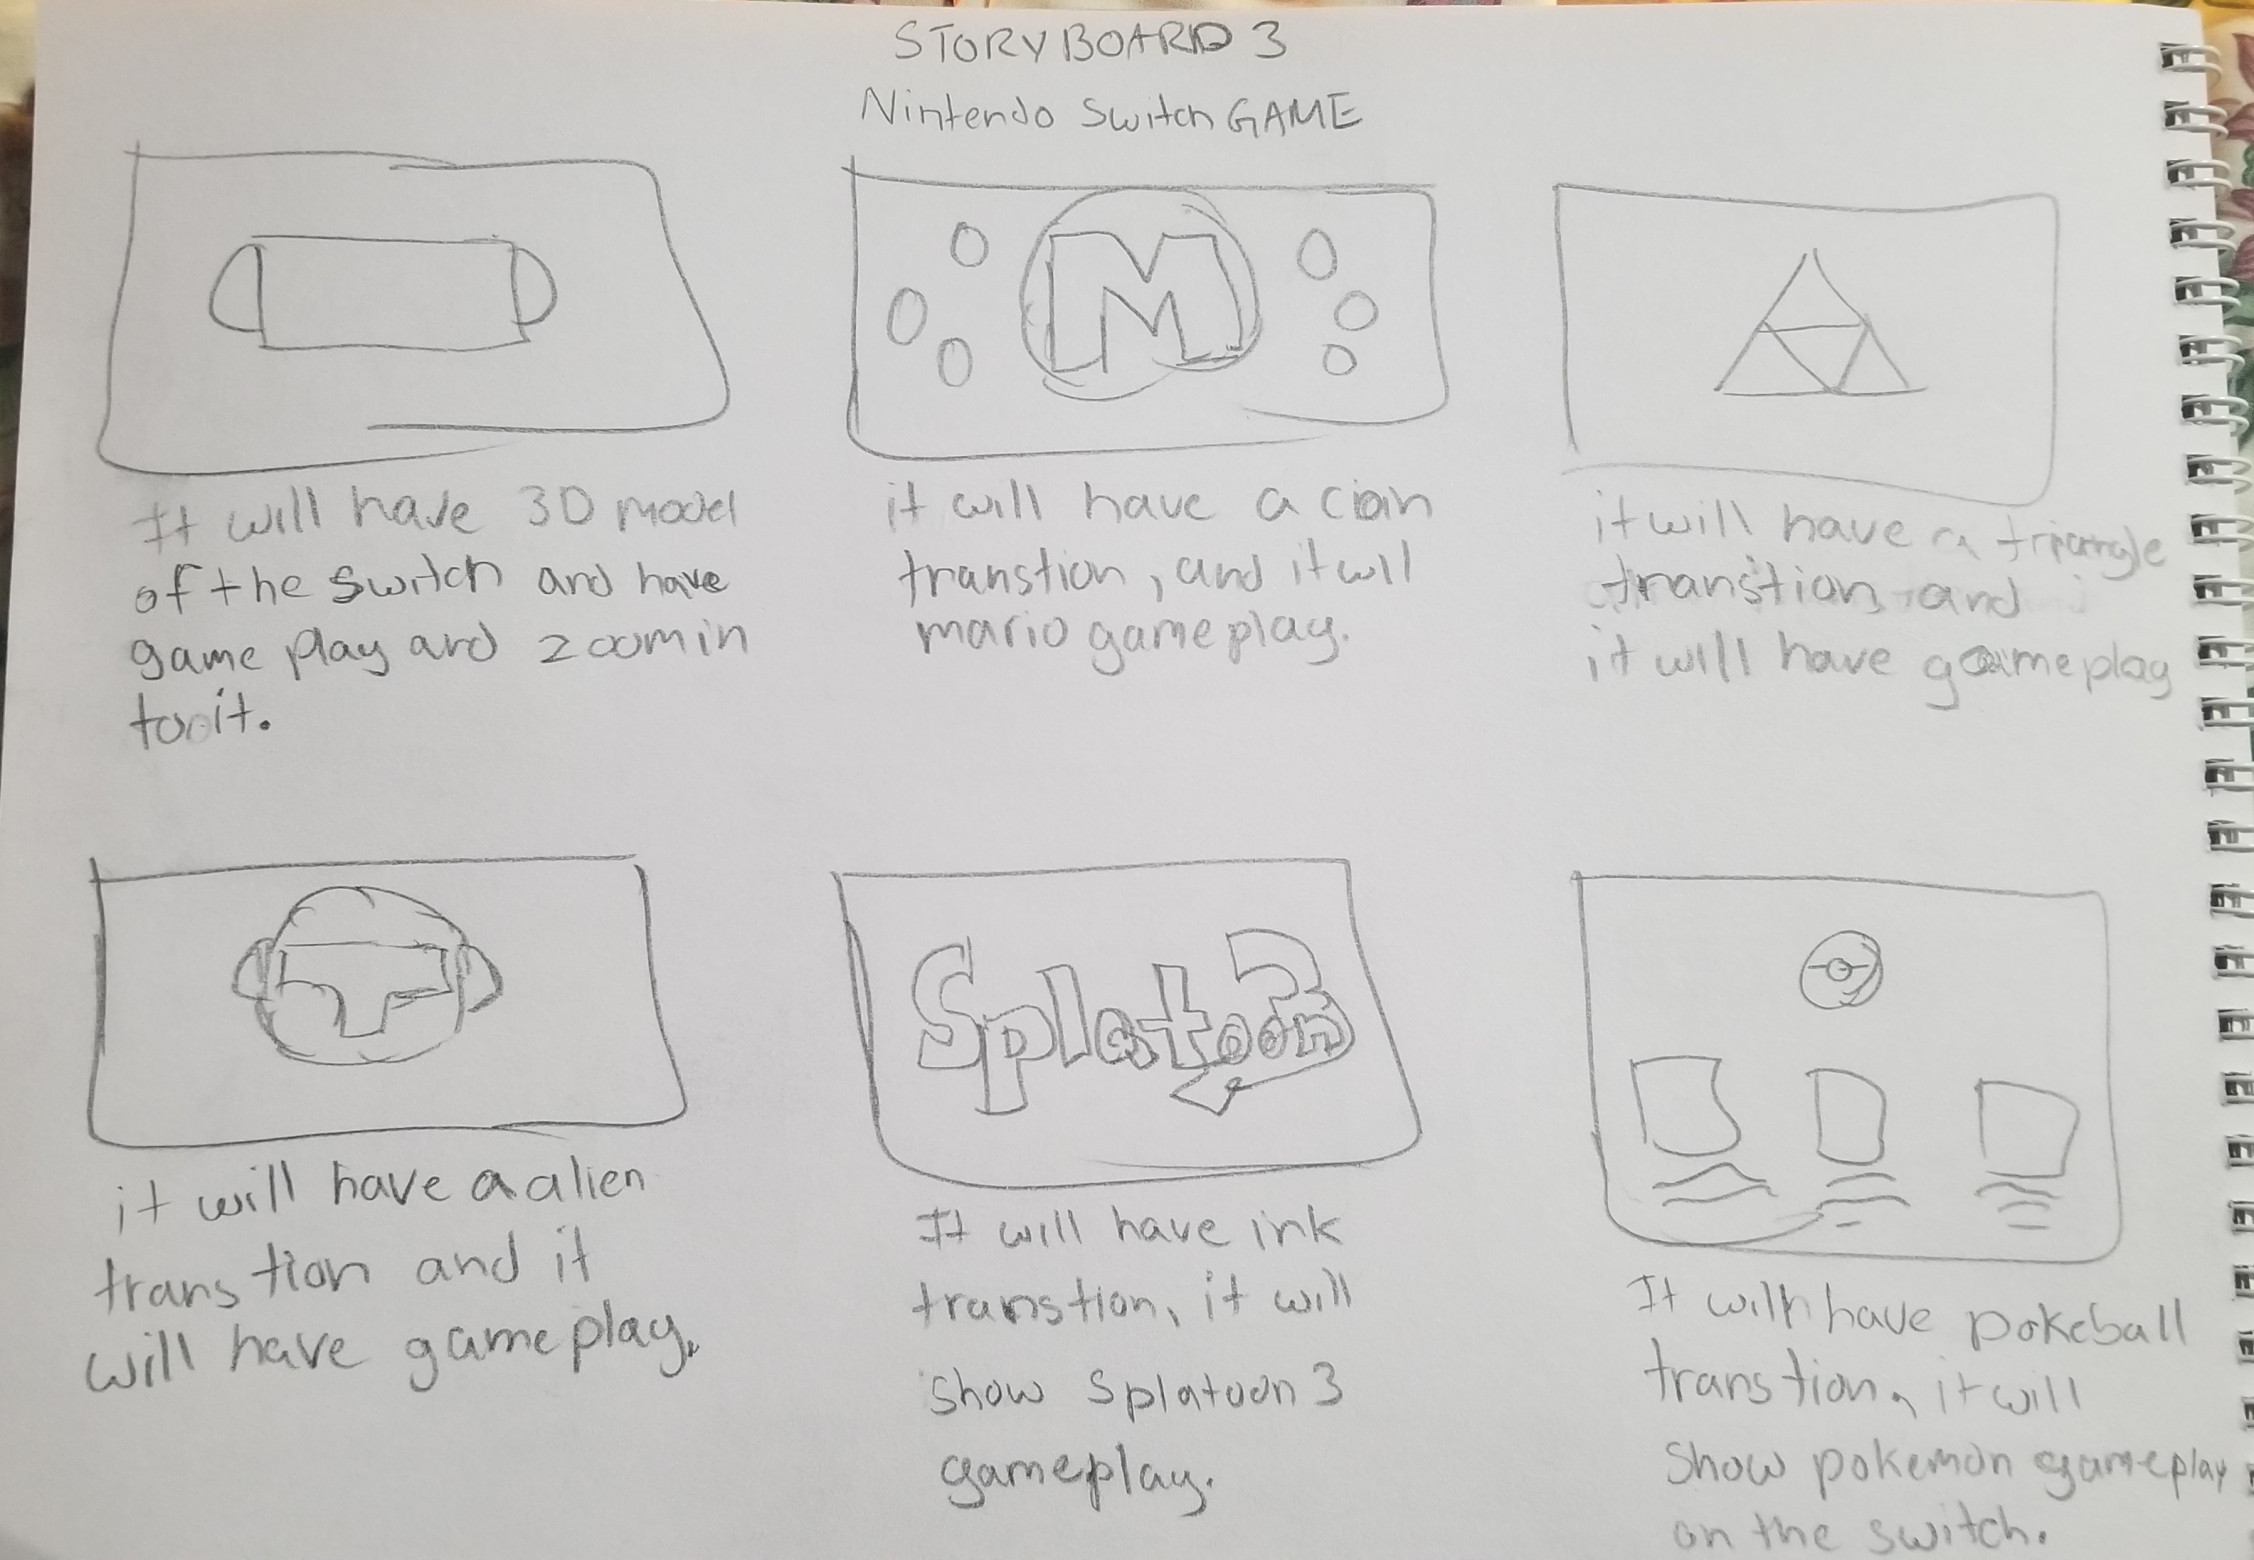 STORYBOARD 3
Nintendo Switch GAME
It will have 3D model
of the switch and have
game play and zoom in
to it.
M
it will have a coin
transtion, and it will
mario gameplay.
it will have a triangle
transtion and
it will have gameplay
it will have a alien
transtion and it
will have gameplay.
Splatoon
It will have ink
transtion, it will
show Splatoon 3
gameplay.
It will have pokeball
transtion, it will
show pokemon gameplay
on the switch.